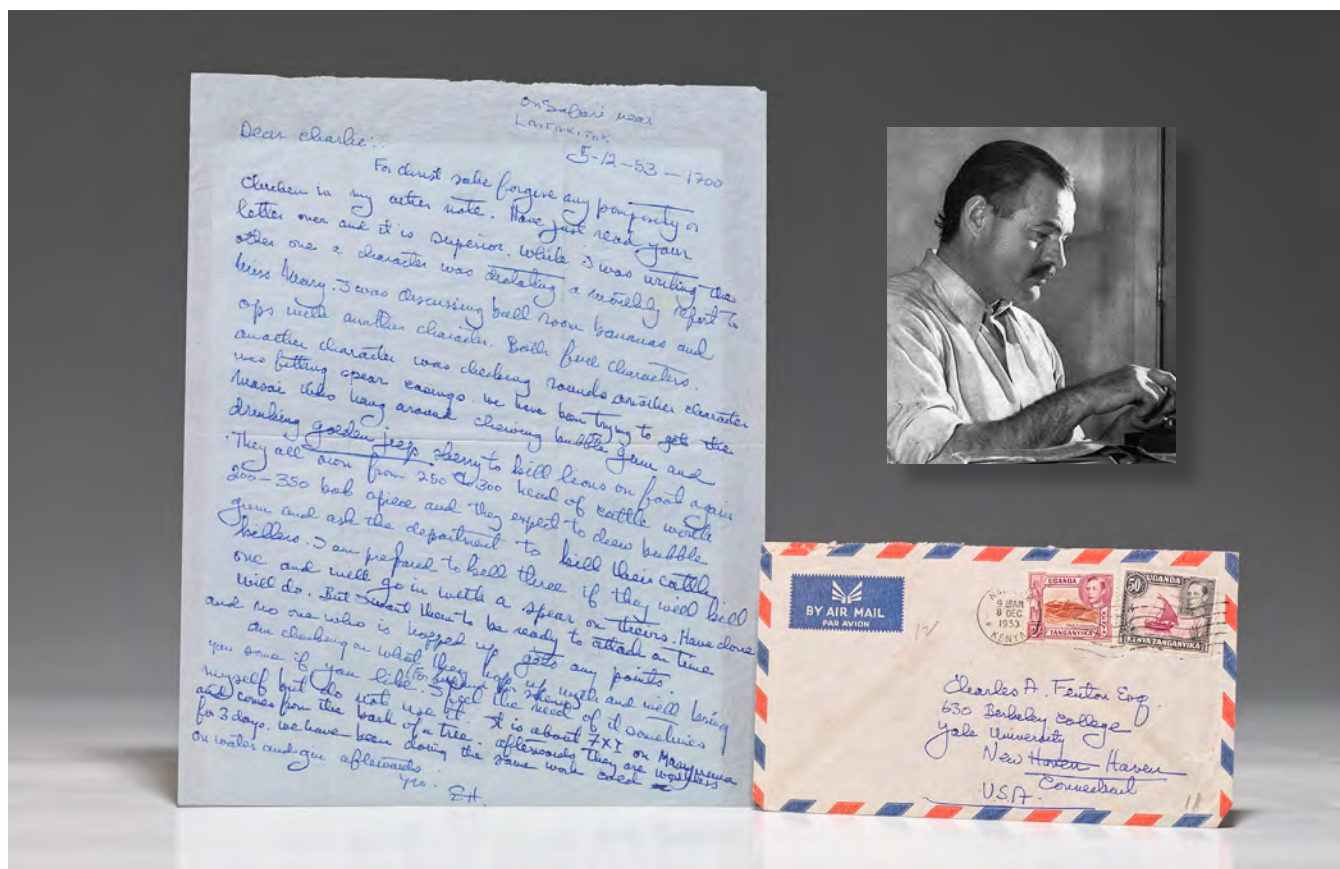 on Safari near
LAITAKITOK
5-12-53-1700
Dear Charlie:
For christ sake forgive any pomposity or
in my other note. Have just read your
letter over and it is superior. While I was writing the
other one a character was dictating a monthly report to
Miss Mary. I was discussing ball room bananas and
ops with another character. Both fine characters.
another character was checking rounds another character
was fitting spear casings. We have been trying to get the
Masai who hang around chewing bubble gum and
drinking golden jeep sherry to kill lions on foot again
They all own from 250 to 300 head of cattle worth
200-350 bob apiece and they expect to chew bubble
gum and ask the department to kill their cattle
killers. I am prepared to kill three if they will kill
one and will go in with a spear on theirs. Have done
will do. But I want them to be ready to attack on time
and no one who is hopped up gets any points.
am checking on what they hop up with and will bring
you some if you like. I feel the need of it sometimes
myself but do not use it. It is about 7X1 on Marijuana
and comes from the bark of a tree. afterwards they are worthless
for 3 days. We have been doing the same work cold
on water and gin afterwards.
Yrs.
EH.
BY AIR MAIL
PAR AVION
9 AM
8 DEC
1953
KENYA
UGANDA
TANGANYIKA
50c UGANDA
KENYA TANGANYIKA
12
Charles A. Fenton Esq.
630 Berkeley College
Yale University
New Haven Haven
Connecticut
U.S.A.